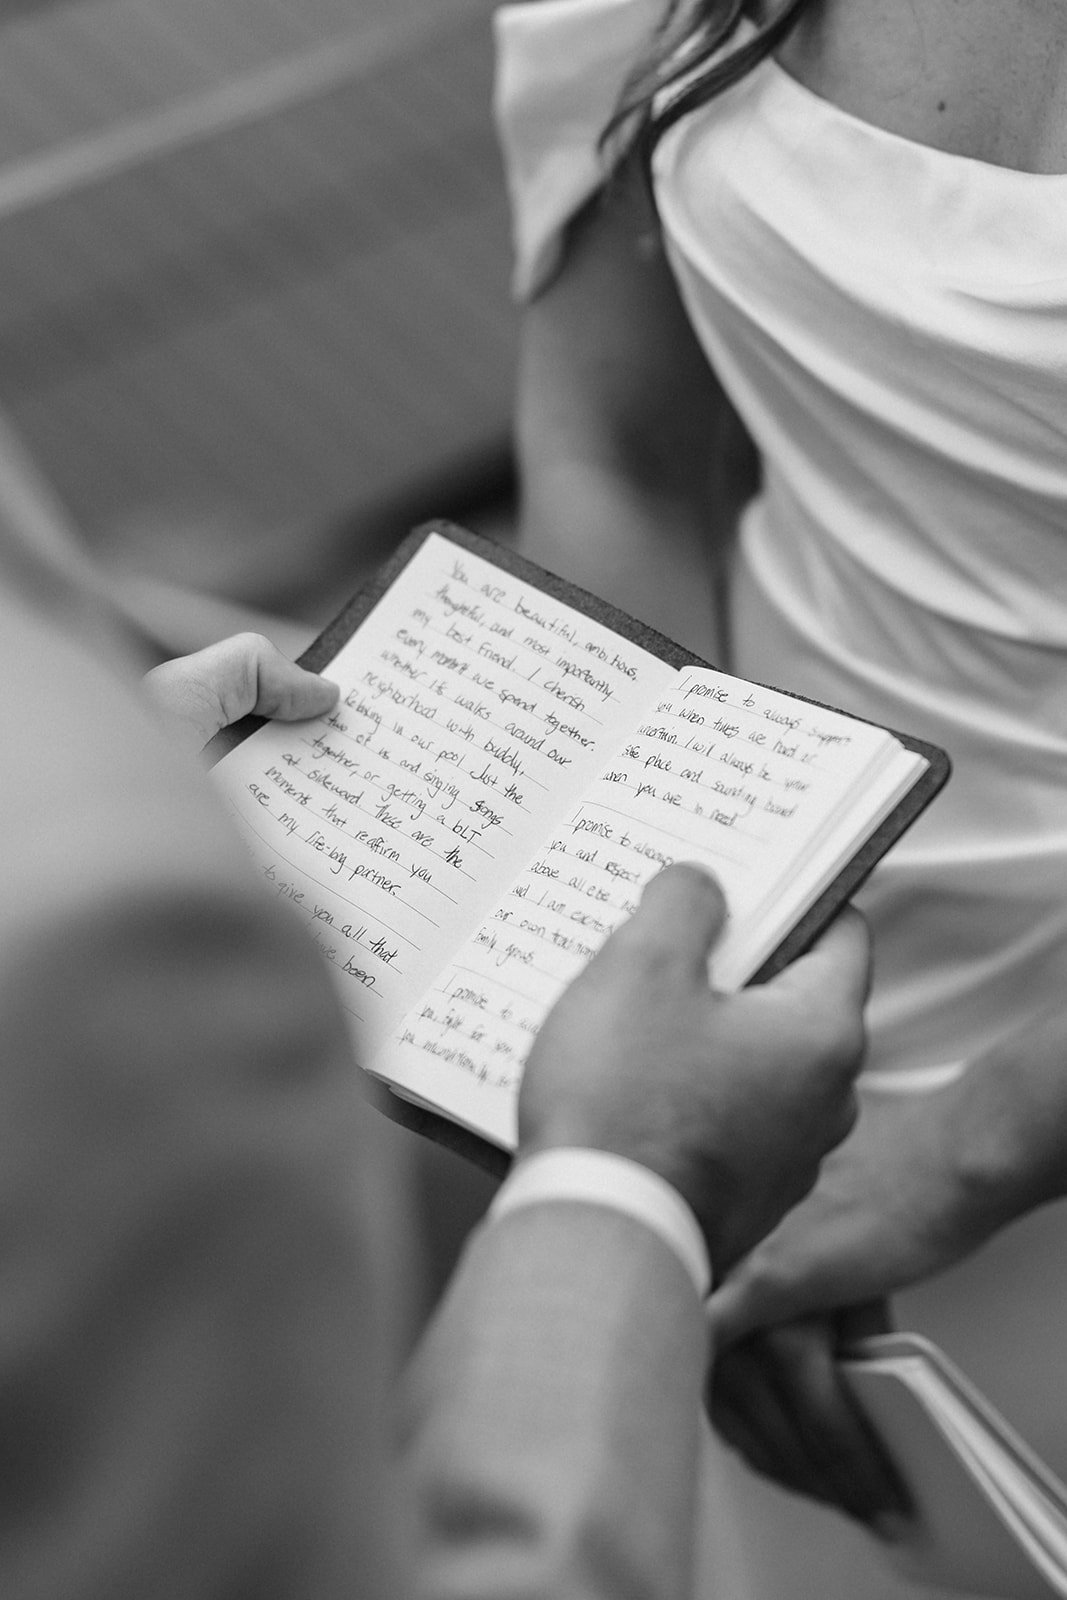 You are beautiful, ambitious,
thoughtful, and most importantly
my best friend. I cherish
every moment we spend together.
whether its walks around our
neighborhood with buddy,
Relaxing in our pool Just the
two of us and singing songs
together, or getting a BLT
at sideward. These are the
moments that reaffirm you
are my life-long partner.
to give you all that
have been
I promise to always support
you when times are hard or
uncertain. I will always be your
safe place and sounding board
when you are in need.
I promise to always
you and respect
above all else
and I am excited
our own traditions
family grows.
I promise to
you, fight for you,
you unconditionally